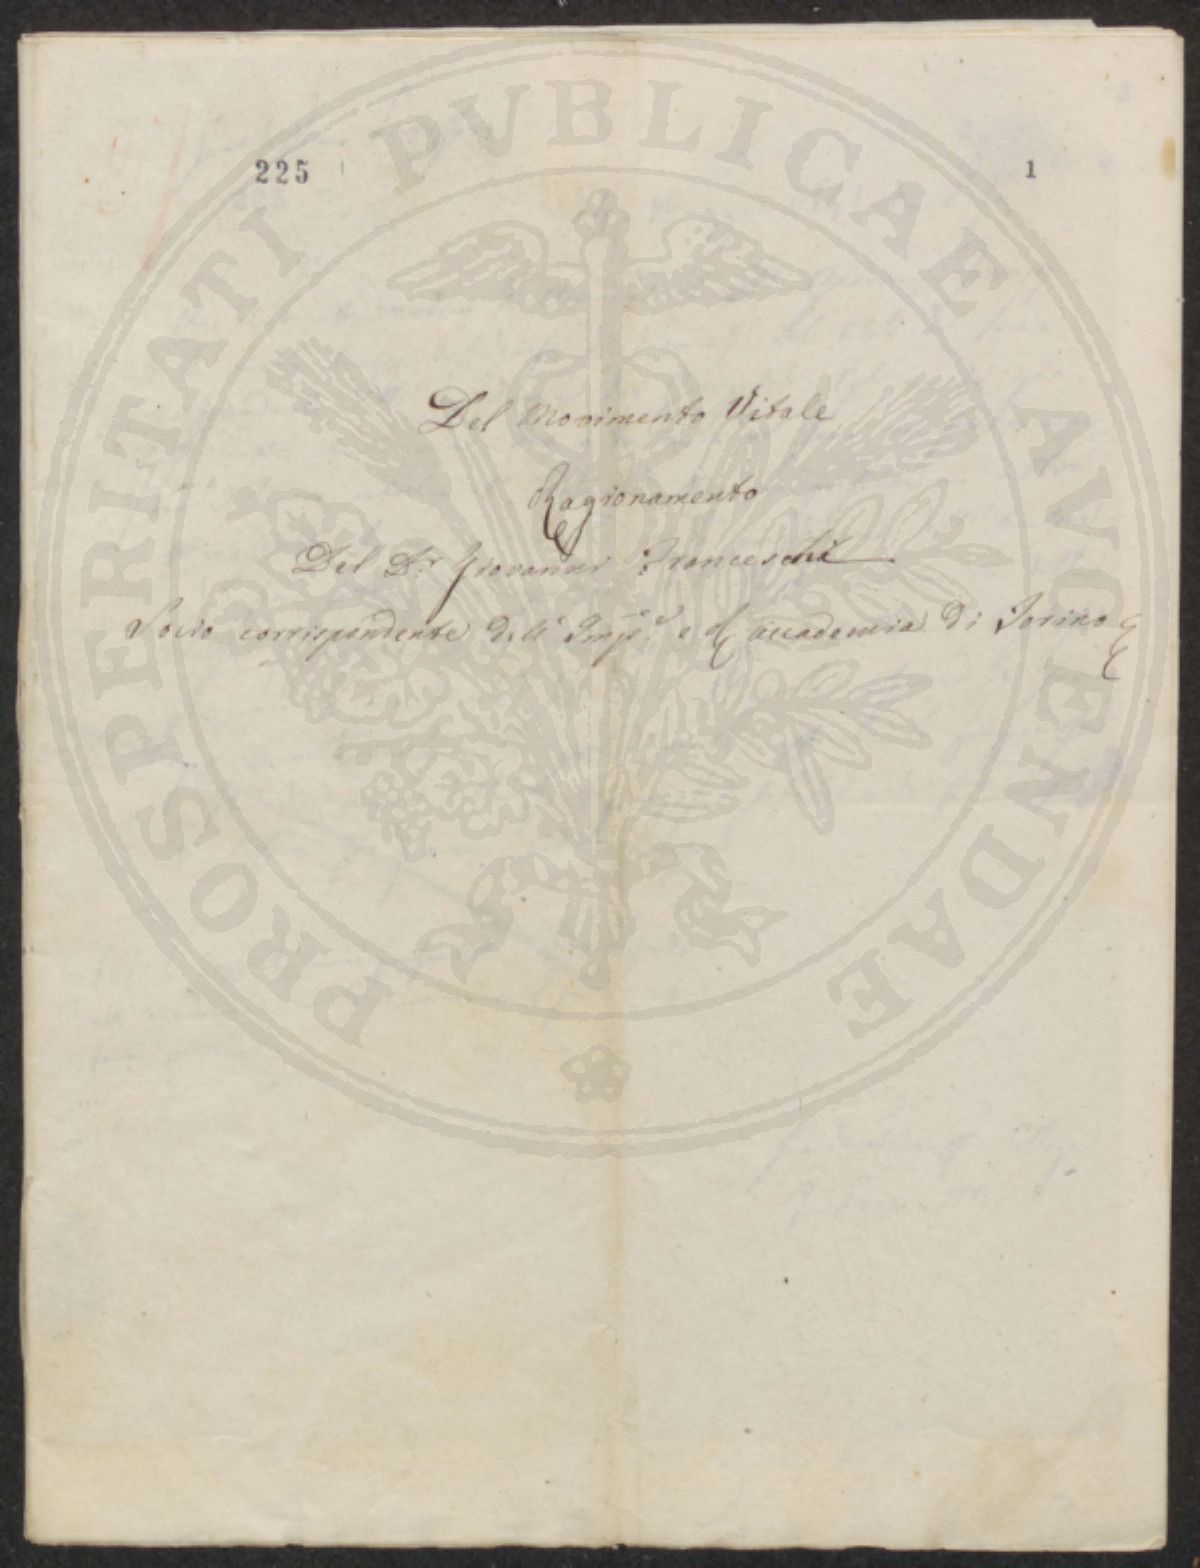 225
1
Del Movimento Vitale
Ragionamento
Del Dr Giovanni Franceschi
Socio corrispondente dell' Imp.e e R. accademia di Torino
PROSPERITATI PVBLICAE AVGENDAE